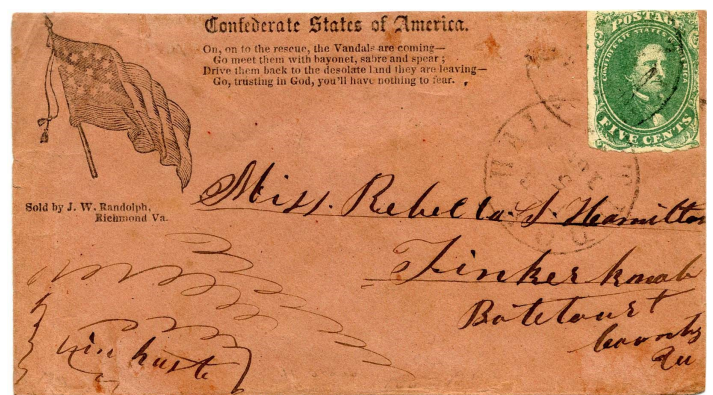 Confederate States of America.
On, on to the rescue, the Vandals are coming—
Go meet them with bayonet, sabre and spear;
Drive them back to the desolate land they are leaving—
Go, trusting in God, you'll have nothing to fear.
POSTAGE
CONFEDERATE STATES OF AMERICA
FIVE CENTS
Sold by J. W. Randolph,
Richmond Va.
Miss. Rebecca. S. Hamilton
Tinker knob
Botetourt
County
in haste